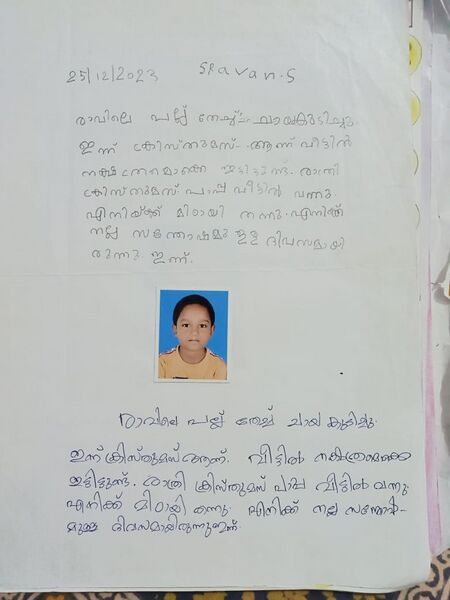 25/12/2023 SRavan.S
രാവിലെ പല്ല് തേച്ച് ചായകുടിച്ചു.
ഇന്ന് ക്രിസ്തുമസ് ആണ് വീട്ടിൽ
നക്ഷത്രമൊക്കെ ഇട്ടിട്ടുണ്ട്. രാത്രി
ക്രിസ്തുമസ് പാപ്പ വീട്ടിൽ വന്നു.
എനിയ്ക്ക് മിഠായി തന്നു. എനിക്ക്
നല്ല സന്തോഷമു ള്ള ദിവസമായി
രുന്നു ഇന്ന്.
രാവിലെ പല്ല് തേച്ച് ചായ കുടിച്ചു.
ഇന്ന് ക്രിസ്തുമസ് ആണ്. വീട്ടിൽ നക്ഷത്രമൊക്കെ
ഇട്ടിട്ടുണ്ട്. രാത്രി ക്രിസ്തുമസ് പാപ്പ വീട്ടിൽ വന്നു.
എനിക്ക് മിഠായി തന്നു. എനിക്ക് നല്ല സന്തോഷ-
മുള്ള ദിവസമായിരുന്നു ഇന്ന്.